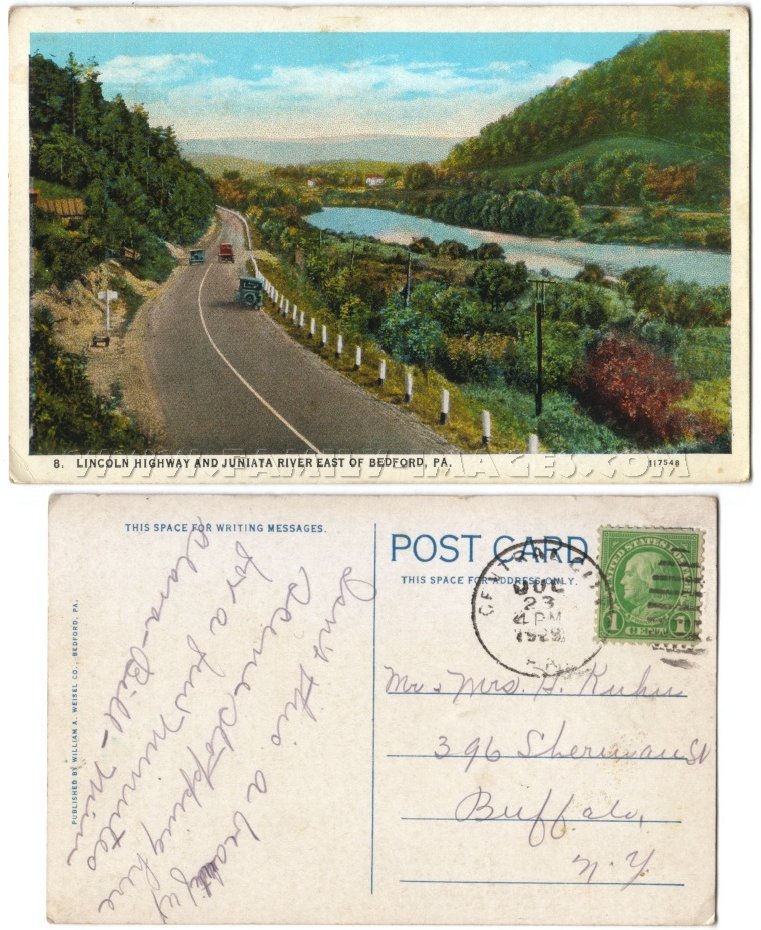 8. LINCOLN HIGHWAY AND JUNIATA RIVER EAST OF BEDFORD, PA.
117548
WWW.FAMILY-IMAGES.COM
THIS SPACE FOR WRITING MESSAGES.
Isn't this a beauty
Scene stopping here
for a few minutes
Clara - Bill - Minn
PUBLISHED BY WILLIAM A. WEISEL CO., BEDFORD, PA.
POST CARD
THIS SPACE FOR ADDRESS ONLY.
CENTRAL CITY
JUL
23
4 PM
1929
PA.
UNITED STATES OF
1 CENT 1
Mr. & Mrs. H. Kuhn
396 Sherman St
Buffalo,
N.Y.